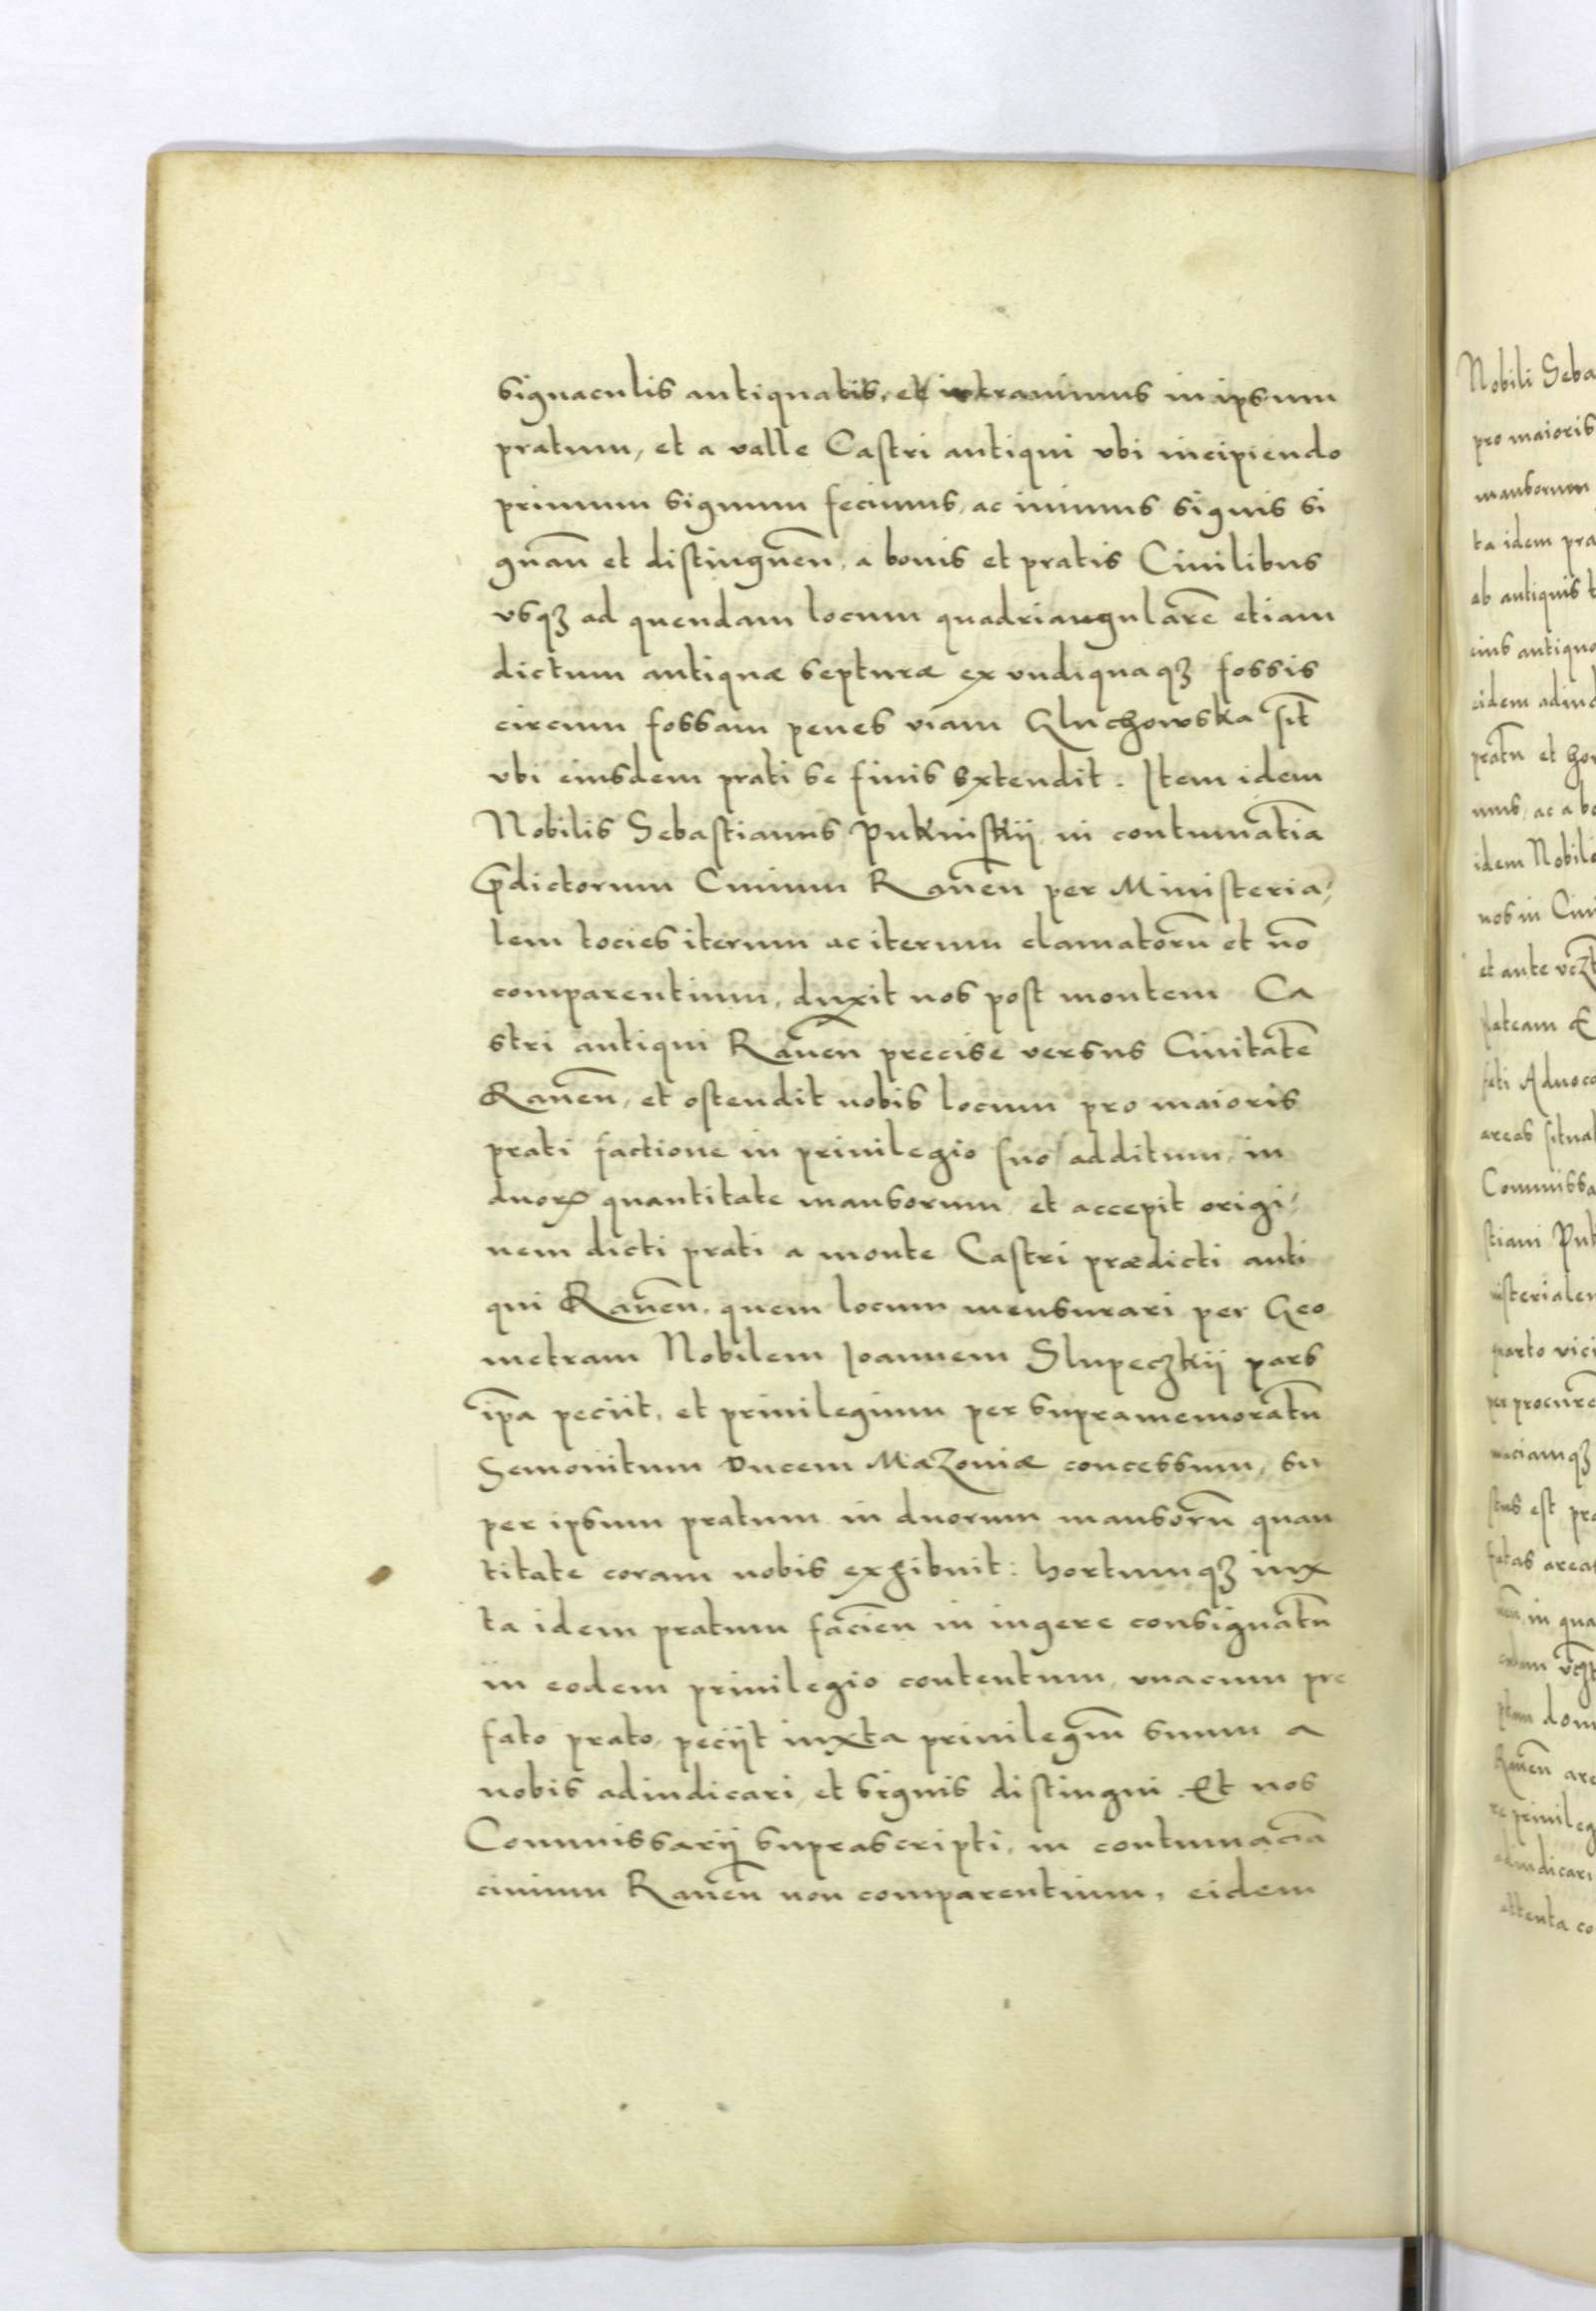 signaculis antiquatis, et intravimus in ipsum
pratum, et a valle Castri antiqui vbi incipiendo
primum signum fecimus, ac inimus signis si
gnañ et distinguen̄, a bonis et pratis Ciuilibus
vsqꝫ ad quendam locum quadriangularē etiam
dictum antiquæ septuræ ex vndiquaqꝫ fossis
circum fossam penes viam Gluchowska sit̄
vbi eiusdem prati se finis extendit. Item idem
Nobilis Sebastianus Pukinskij in contumatia
p̄dictorum Ciuium Rauen̄ per Ministeria,
lem tocies iterum ac iterum clamatorū et nō
comparentium, duxit nos post montem Ca
stri antiqui Rauen̄ precise versus Ciuitatē
Rauen̄, et ostendit nobis locum pro maioris
prati factione in priuilegio suo additum, in
duoꝝ quantitate mansorum, et accepit origi,
nem dicti prati a monte Castri prædicti anti
qui Rauen̄, quem locum mensurari per Geo
metram Nobilem Joannem Slupeczkij pars
ip̄a peciit, et priuilegium per supramemoratū
Semouitum Ducem Mazouiæ concessum, su
per ipsum pratum in duorum mansorū quan
titate coram nobis exhibuit: hortumqꝫ iux
ta idem pratum facien̄ in iugere consignatū
in eodem priuilegio contentum, vnacum pre
fato prato, peciit iuxta priuilegiū suum a
nobis adiudicari, et signis distingui. Et nos
Commissarij suprascripti, in contumaciā
ciuium Rauen̄ non comparentium, eidem
Nobili Seba
pro maioris
mansorum
ta idem pra
ab antiquis
eius antiquo
eidem adiud
pratū et hor
idem Nobile
nos in Ciui
et ante
plateam
areas situat
Commissa
stiani Puk
per procure
stus est pra
fatas areas
in qua
Rauen̄ are
re priuileg
adiudicari
attenta co